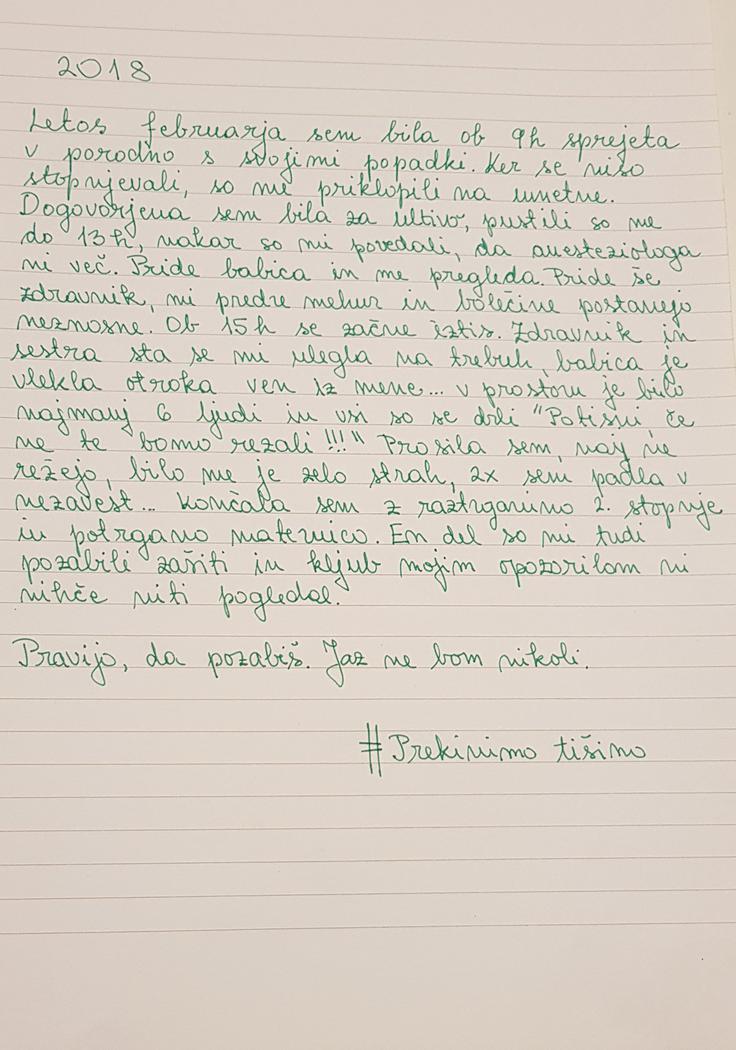 2018
Letos februarja sem bila ob 9h sprejeta
v porodno s svojimi popadki. Ker se niso
stopnjevali, so me priklopili na umetne.
Dogovorjena sem bila za ultivo, pustili so me
do 13h, nakar so mi povedali, da anesteziologa
ni več. Pride babica in me pregleda. Pride še
zdravnik, mi predre mehur in bolečine postanejo
neznosne. Ob 15h se začne iztis. Zdravnik in
sestra sta se mi ulegla na trebuh, babica je
vlekla otroka ven iz mene... v prostoru je bilo
najmanj 6 ljudi in vsi so se drli "Potisni, če
ne te bomo rezali!!!" Prosila sem, naj ne
režejo, bilo me je zelo strah, 2x sem padla v
nezavest... Končala sem z raztrganino 2. stopnje
in potrgano maternico. En del so mi tudi
pozabili zašiti in kljub mojim opozorilom ni
nihče niti pogledal.
Pravijo, da pozabiš. Jaz ne bom nikoli.
#Prekinimo tišino